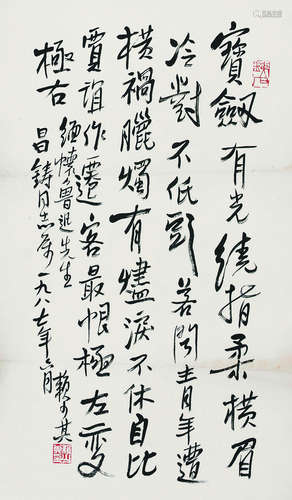 寶劔有光繞指柔橫眉
冷對不低頭若聞青年遭
橫禍臘燭有燼淚不休自比
賈誼作遷客最恨極左變
極右
緬懷魯迅先生
昌鑄同志屬一九八七年六月賴少其